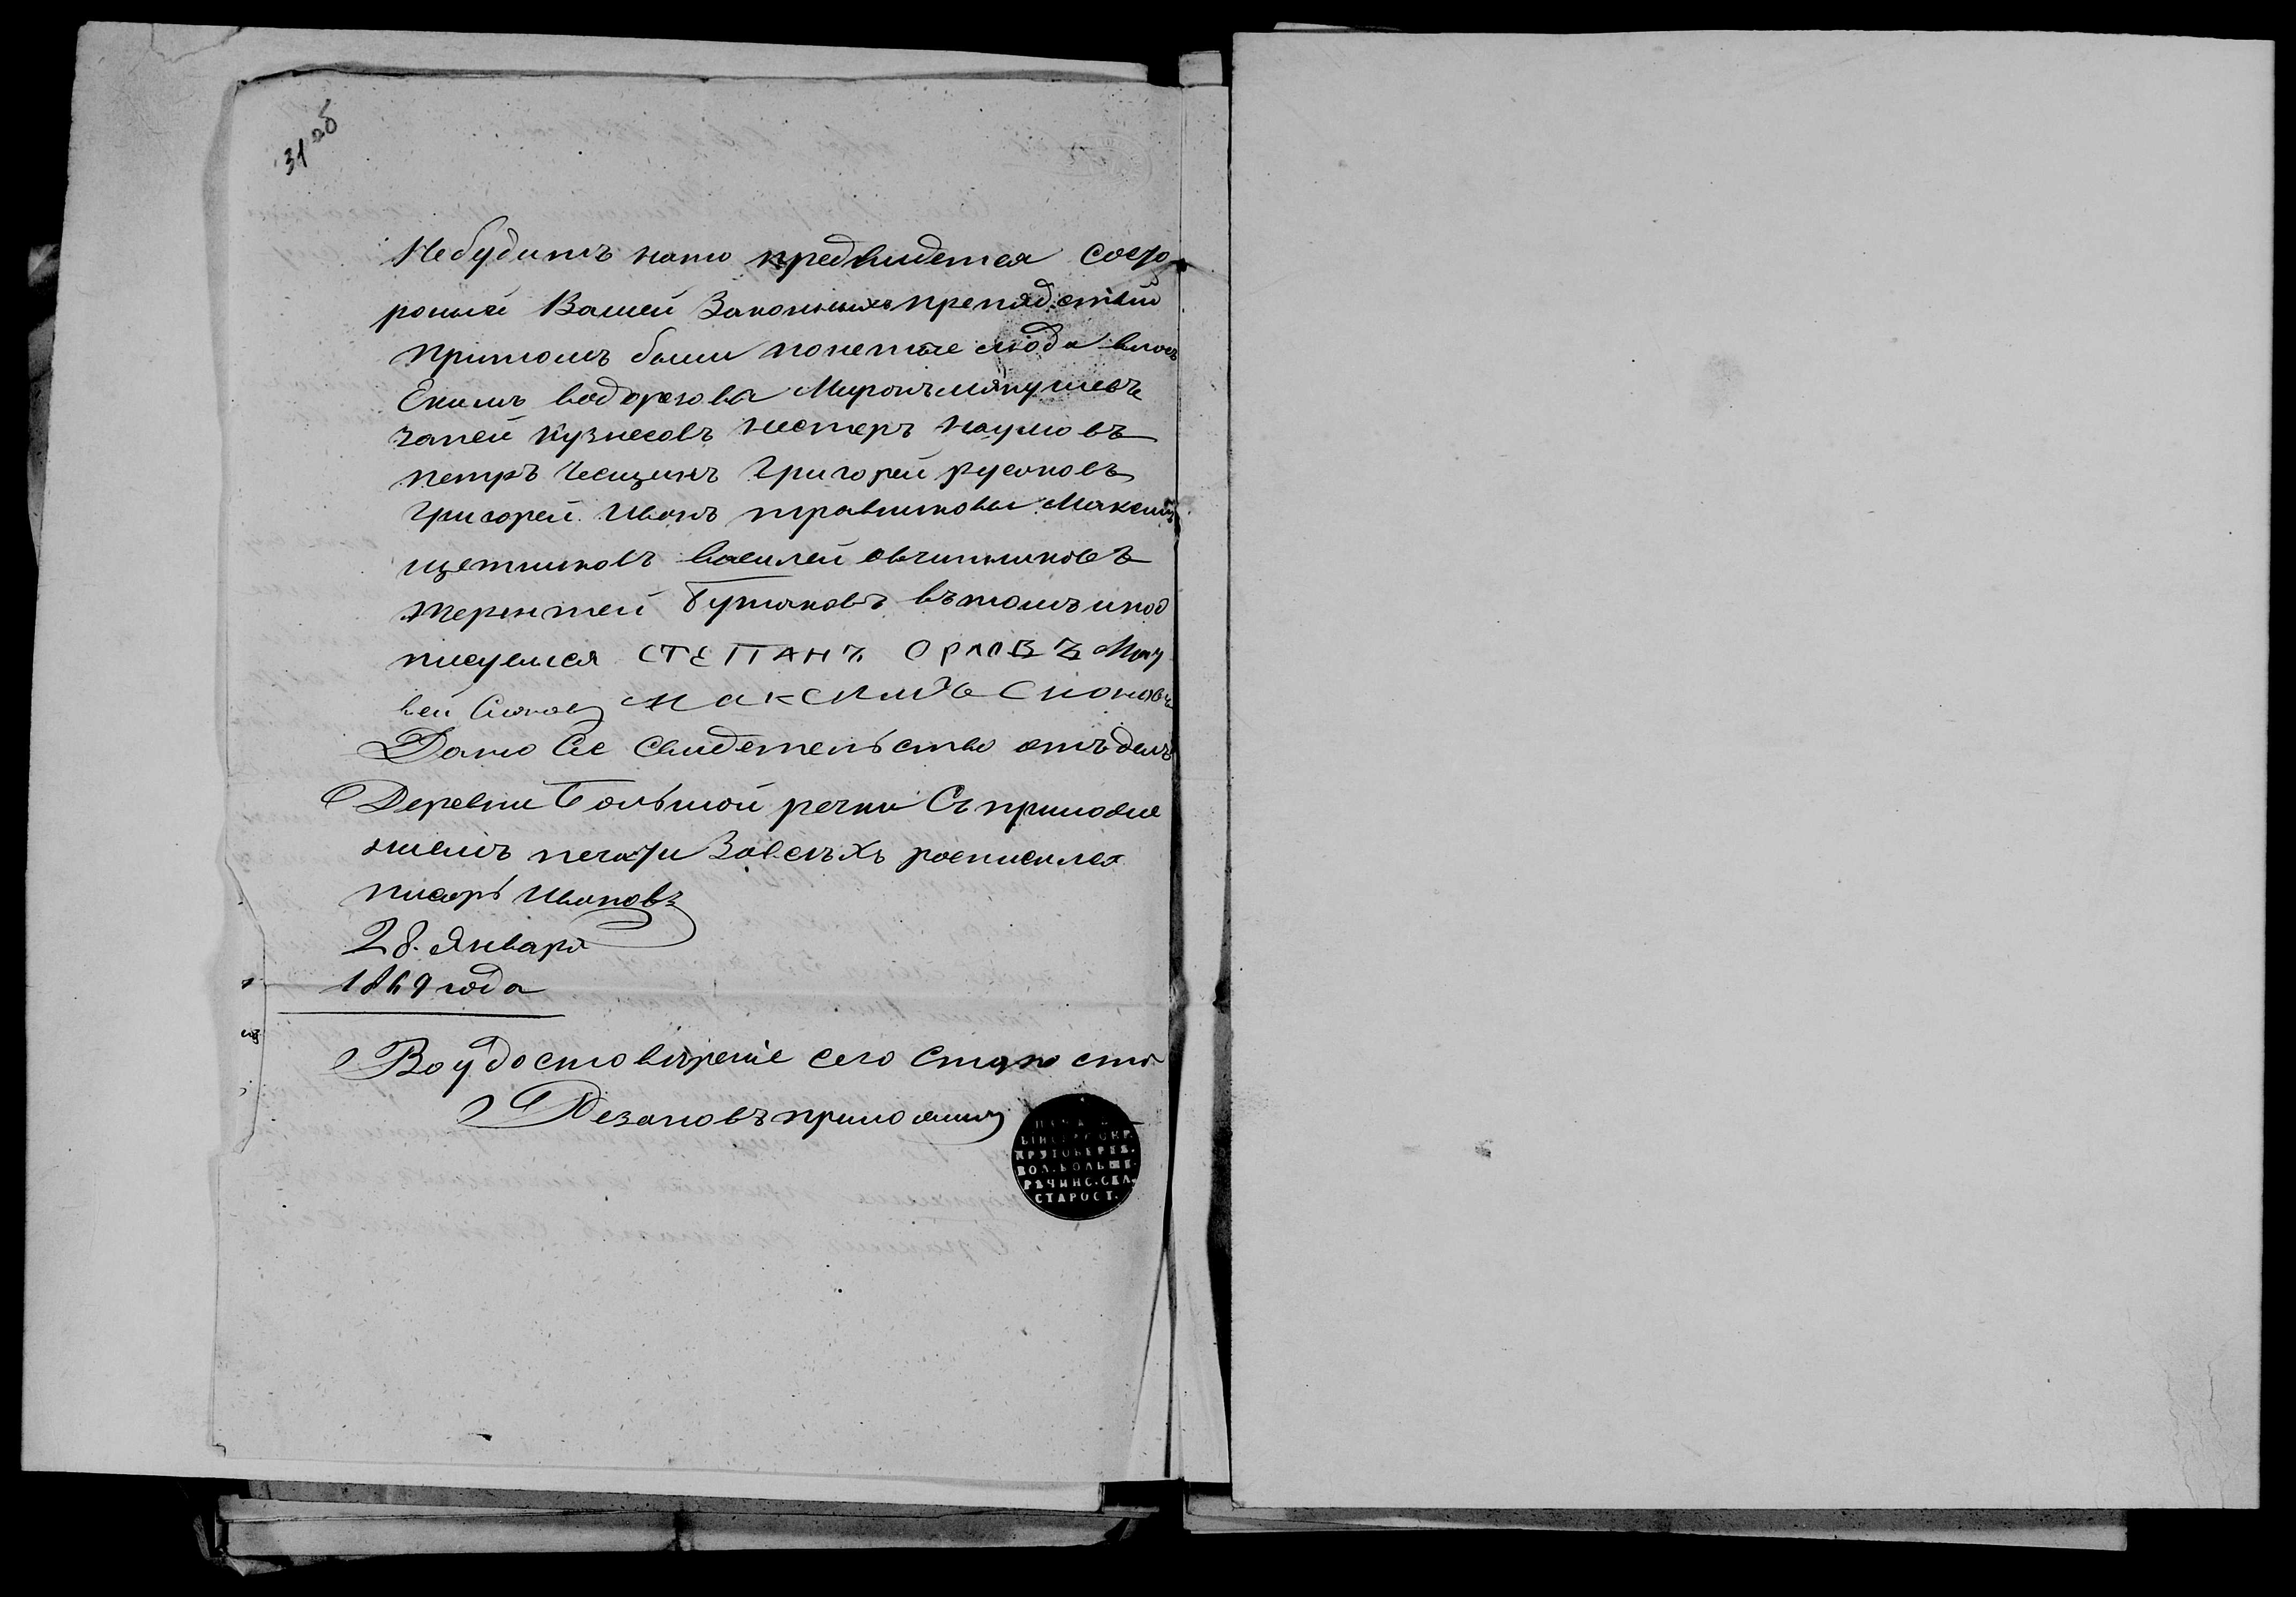 31 об
Небудитъ нато предвидется состо
роный Вашей Законныхъ препядствий
притомъ были понетые люди
Екимъ водорезова Миронъ мякушевъ
Кузнесовъ нестеръ наумовъ
петръ Чещинъ Григорей русановъ
Григорей Иванъ травниковы Максимъ
щетниковъ василей овчинниковъ
терентей Бутаковъ въ томъ и под
писуемся СТЕПАНЪ ОРЛОВЪ
вей Сионов максимъ Сионовъ
Дано Сие свидетельство отъ
Деревни Большой речки Съ приложе
ниемъ печати За всехъ росписился
писарь Ивановъ
28. Января
1869 года
Во удостовѣрение сего старосто
приложилъ
КРУТОБЕРЕЗ.
ВОЛ. БОЛЬШЕ
РѢЧИНС. СЕЛ.
СТАРОСТ.